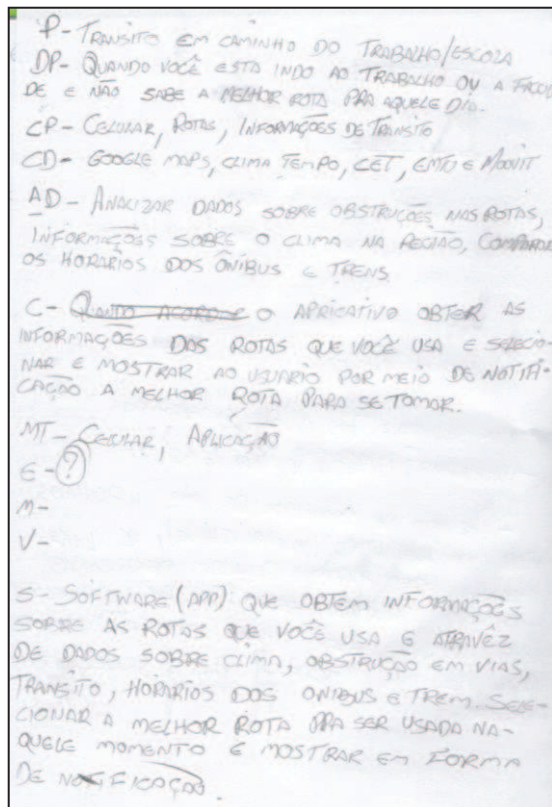 P- TRANSITO EM CAMINHO DO TRABALHO/ESCOLA
DP- QUANDO VOCÊ ESTA INDO AO TRABALHO OU A
DE E NÃO SABE A MELHOR ROTA PRA AQUELE DIA.
CP- CELULAR, ROTAS, INFORMAÇÕES DE TRANSITO
CD- GOOGLE MAPS, CLIMA TEMPO, CET, EMTU E MOOVIT
AD- ANALIZAR DADOS SOBRE OBSTRUÇÕES NAS ROTAS,
INFORMAÇÕES SOBRE O CLIMA NA REGIÃO, COMPARAR
OS HORARIOS DOS ÔNIBUS E TRENS
C- QUANTO ACORDO E O APRICATIVO OBTER AS
INFORMAÇÕES DAS ROTAS QUE VOCÊ USA E SELECIO-
NAR E MOSTRAR AO USUARIO POR MEIO DE NOTIFI-
CAÇÃO A MELHOR ROTA PARA SE TOMAR.
MT- CELULAR, APLICAÇÃO
E- ?
M-
V-
S- SOFTWARE (APP) QUE OBTEM INFORMAÇÕES
SOBRE AS ROTAS QUE VOCÊ USA E ATRAVÉZ
DE DADOS SOBRE CLIMA, OBSTRUÇÃO EM VIAS,
TRANSITO, HORARIOS DOS ONIBUS E TREM. SELE-
CIONAR A MELHOR ROTA PRA SER USADA NA-
QUELE MOMENTO E MOSTRAR EM FORMA
DE NOTIFICAÇÃO.